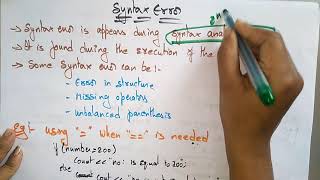 Syntax Error
→ Syntax error is appears during Syntax ana
2n
→ It is found during the execution of the
→ Some Syntax error can be :-
- Error in structure
- Missing operators
- unbalanced parenthesis
Eg:- using "=" when "==" is needed
if (number=200)
cout << "no: is equal to 200";
else
cout << "no: